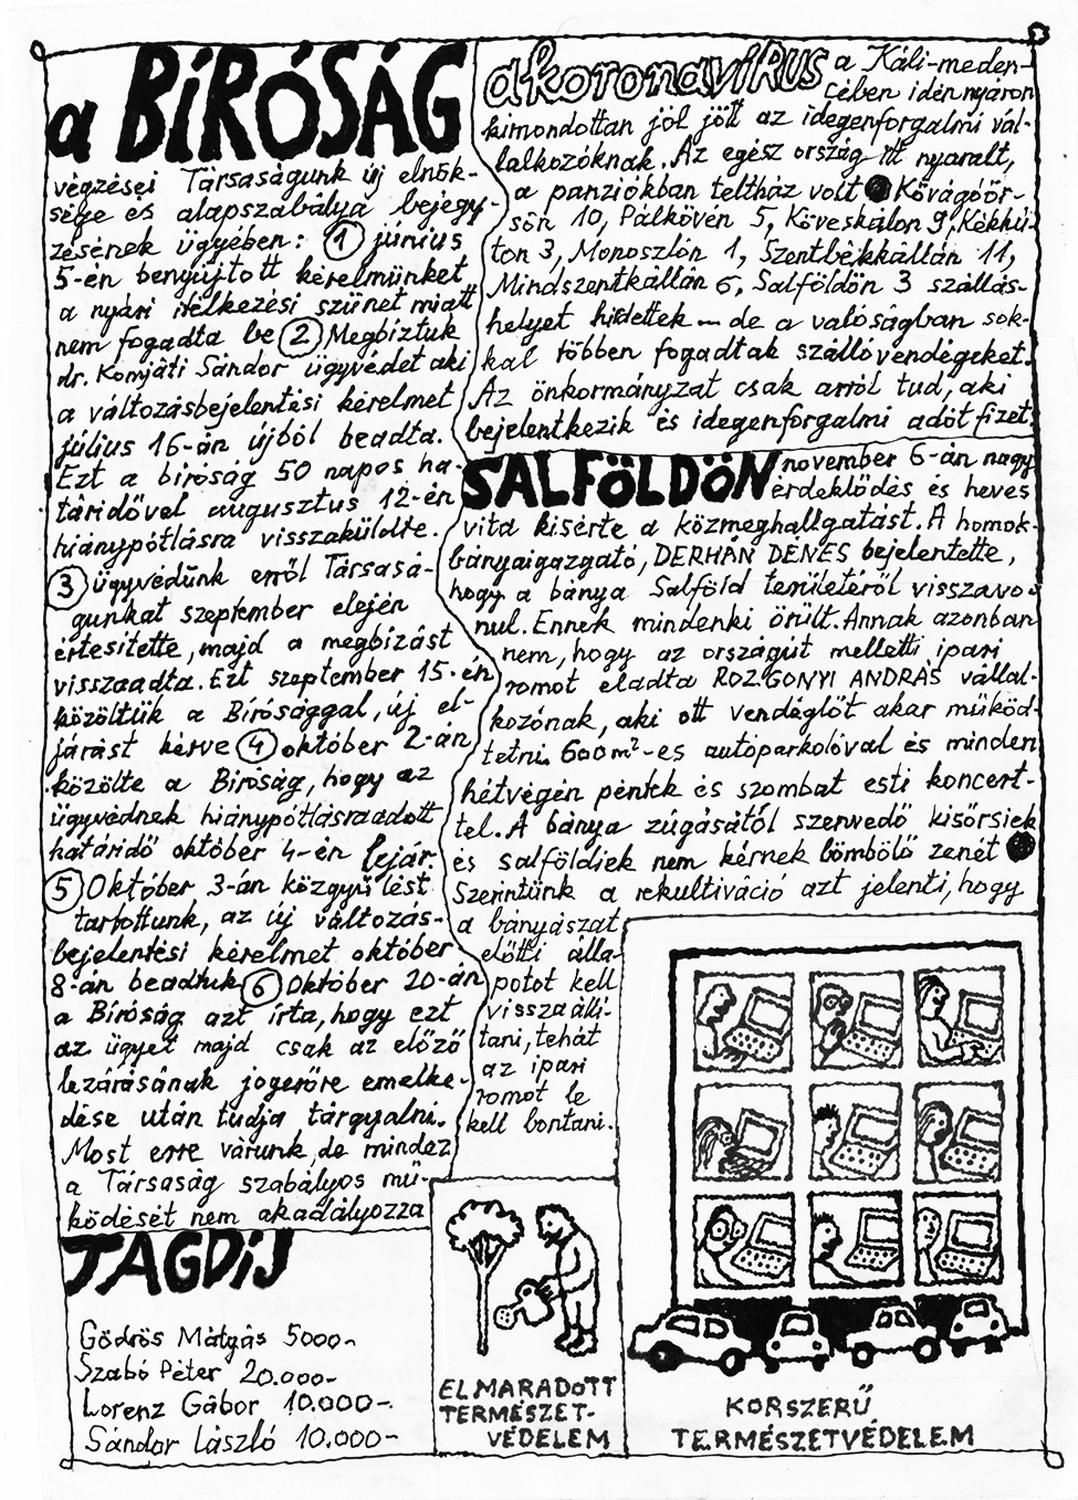 a BÍRÓSÁG
végzései Társaságunk új elnök-
sége és alapszabálya bejegy-
zésének ügyében: ① június
5-én benyújtott kérelmünket
a nyári ítélkezési szünet miatt
nem fogadta be ② Megbíztuk
dr. Komjáti Sándor ügyvédet aki
a változásbejelentési kérelmet
július 16-án újból beadta.
Ezt a bíróság 50 napos ha-
táridővel augusztus 12-én
hiánypótlásra visszaküldte.
③ ügyvédünk erről Társasá-
gunkat szeptember elején
értesítette, majd a megbízást
visszaadta. Ezt szeptember 15-én
közöltük a Bírósággal, új el-
járást kérve ④ október 2-án
közölte a Bíróság, hogy az
ügyvédnek hiánypótlásra adott
határidő október 4-én lejár.
⑤ Október 3-án közgyűlést
tartottunk, az új változás-
bejelentési kérelmet október
8-án beadtuk ⑥ Október 20-án
a Bíróság azt írta, hogy ezt
az ügyet majd csak az előző
lezárásának jogerőre emelke-
dése után tudja tárgyalni.
Most erre várunk, de mindez
a Társaság szabályos mű-
ködését nem akadályozza
TAGDÍJ
Gödrös Mátyás 5000-
Szabó Péter 20.000-
Lorenz Gábor 10.000-
Sándor László 10.000-
a koronavíRUS a Káli-meden-
cében idén nyáron
kimondottan jól jött az idegenforgalmi vál-
lalkozóknak. Az egész ország itt nyaralt,
a panziókban teltház volt ● Kővágóör-
sön 10, Pálkövén 5, Köveskálon 9, Kékkú-
ton 3, Monoszlón 1, Szentbékkállán 11,
Mindszentkállán 6, Salföldön 3 szállás-
helyet hirdettek - de a valóságban sok-
kal többen fogadtak szállóvendégeket.
Az önkormányzat csak arról tud, aki
bejelentkezik és idegenforgalmi adót fizet.
SALFÖLDÖN november 6-án nagy
érdeklődés és heves
vita kísérte a közmeghallgatást. A homok-
bányaigazgató, DERHÁN DÉNES bejelentette,
hogy a bánya Salföld területéről visszavo-
nul. Ennek mindenki örült. Annak azonban
nem, hogy az országút melletti ipari
romot eladta ROZGONYI ANDRÁS vállal-
kozónak, aki ott vendéglőt akar működ-
tetni 600 m²-es autóparkolóval és minden
hétvégén péntek és szombat esti koncert-
tel. A bánya zúgásától szenvedő kisőrsiek
és salföldiek nem kérnek bömbölő zenét ●
Szerintünk a rekultiváció azt jelenti, hogy
a bányászat
előtti álla-
potot kell
visszaállí-
tani, tehát
az ipari
romot le
kell bontani.
ELMARADOTT
TERMÉSZET-
VÉDELEM
KORSZERŰ
TERMÉSZETVÉDELEM